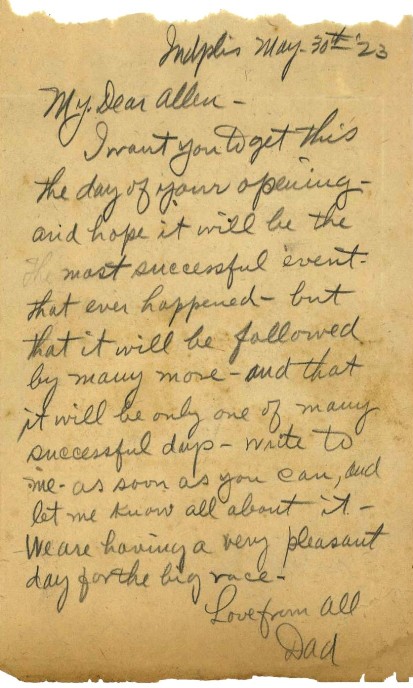 Indplis May-30th '23
My Dear Allen-
I want you to get this
the day of your opening-
and hope it will be the
The most successful event-
that ever happened- but
that it will be followed
by many more- and that
it will be only one of many
successful days- write to
me- as soon as you can, and
let me know all about it-
We are having a very pleasant
day for the big race-
Love from all
Dad